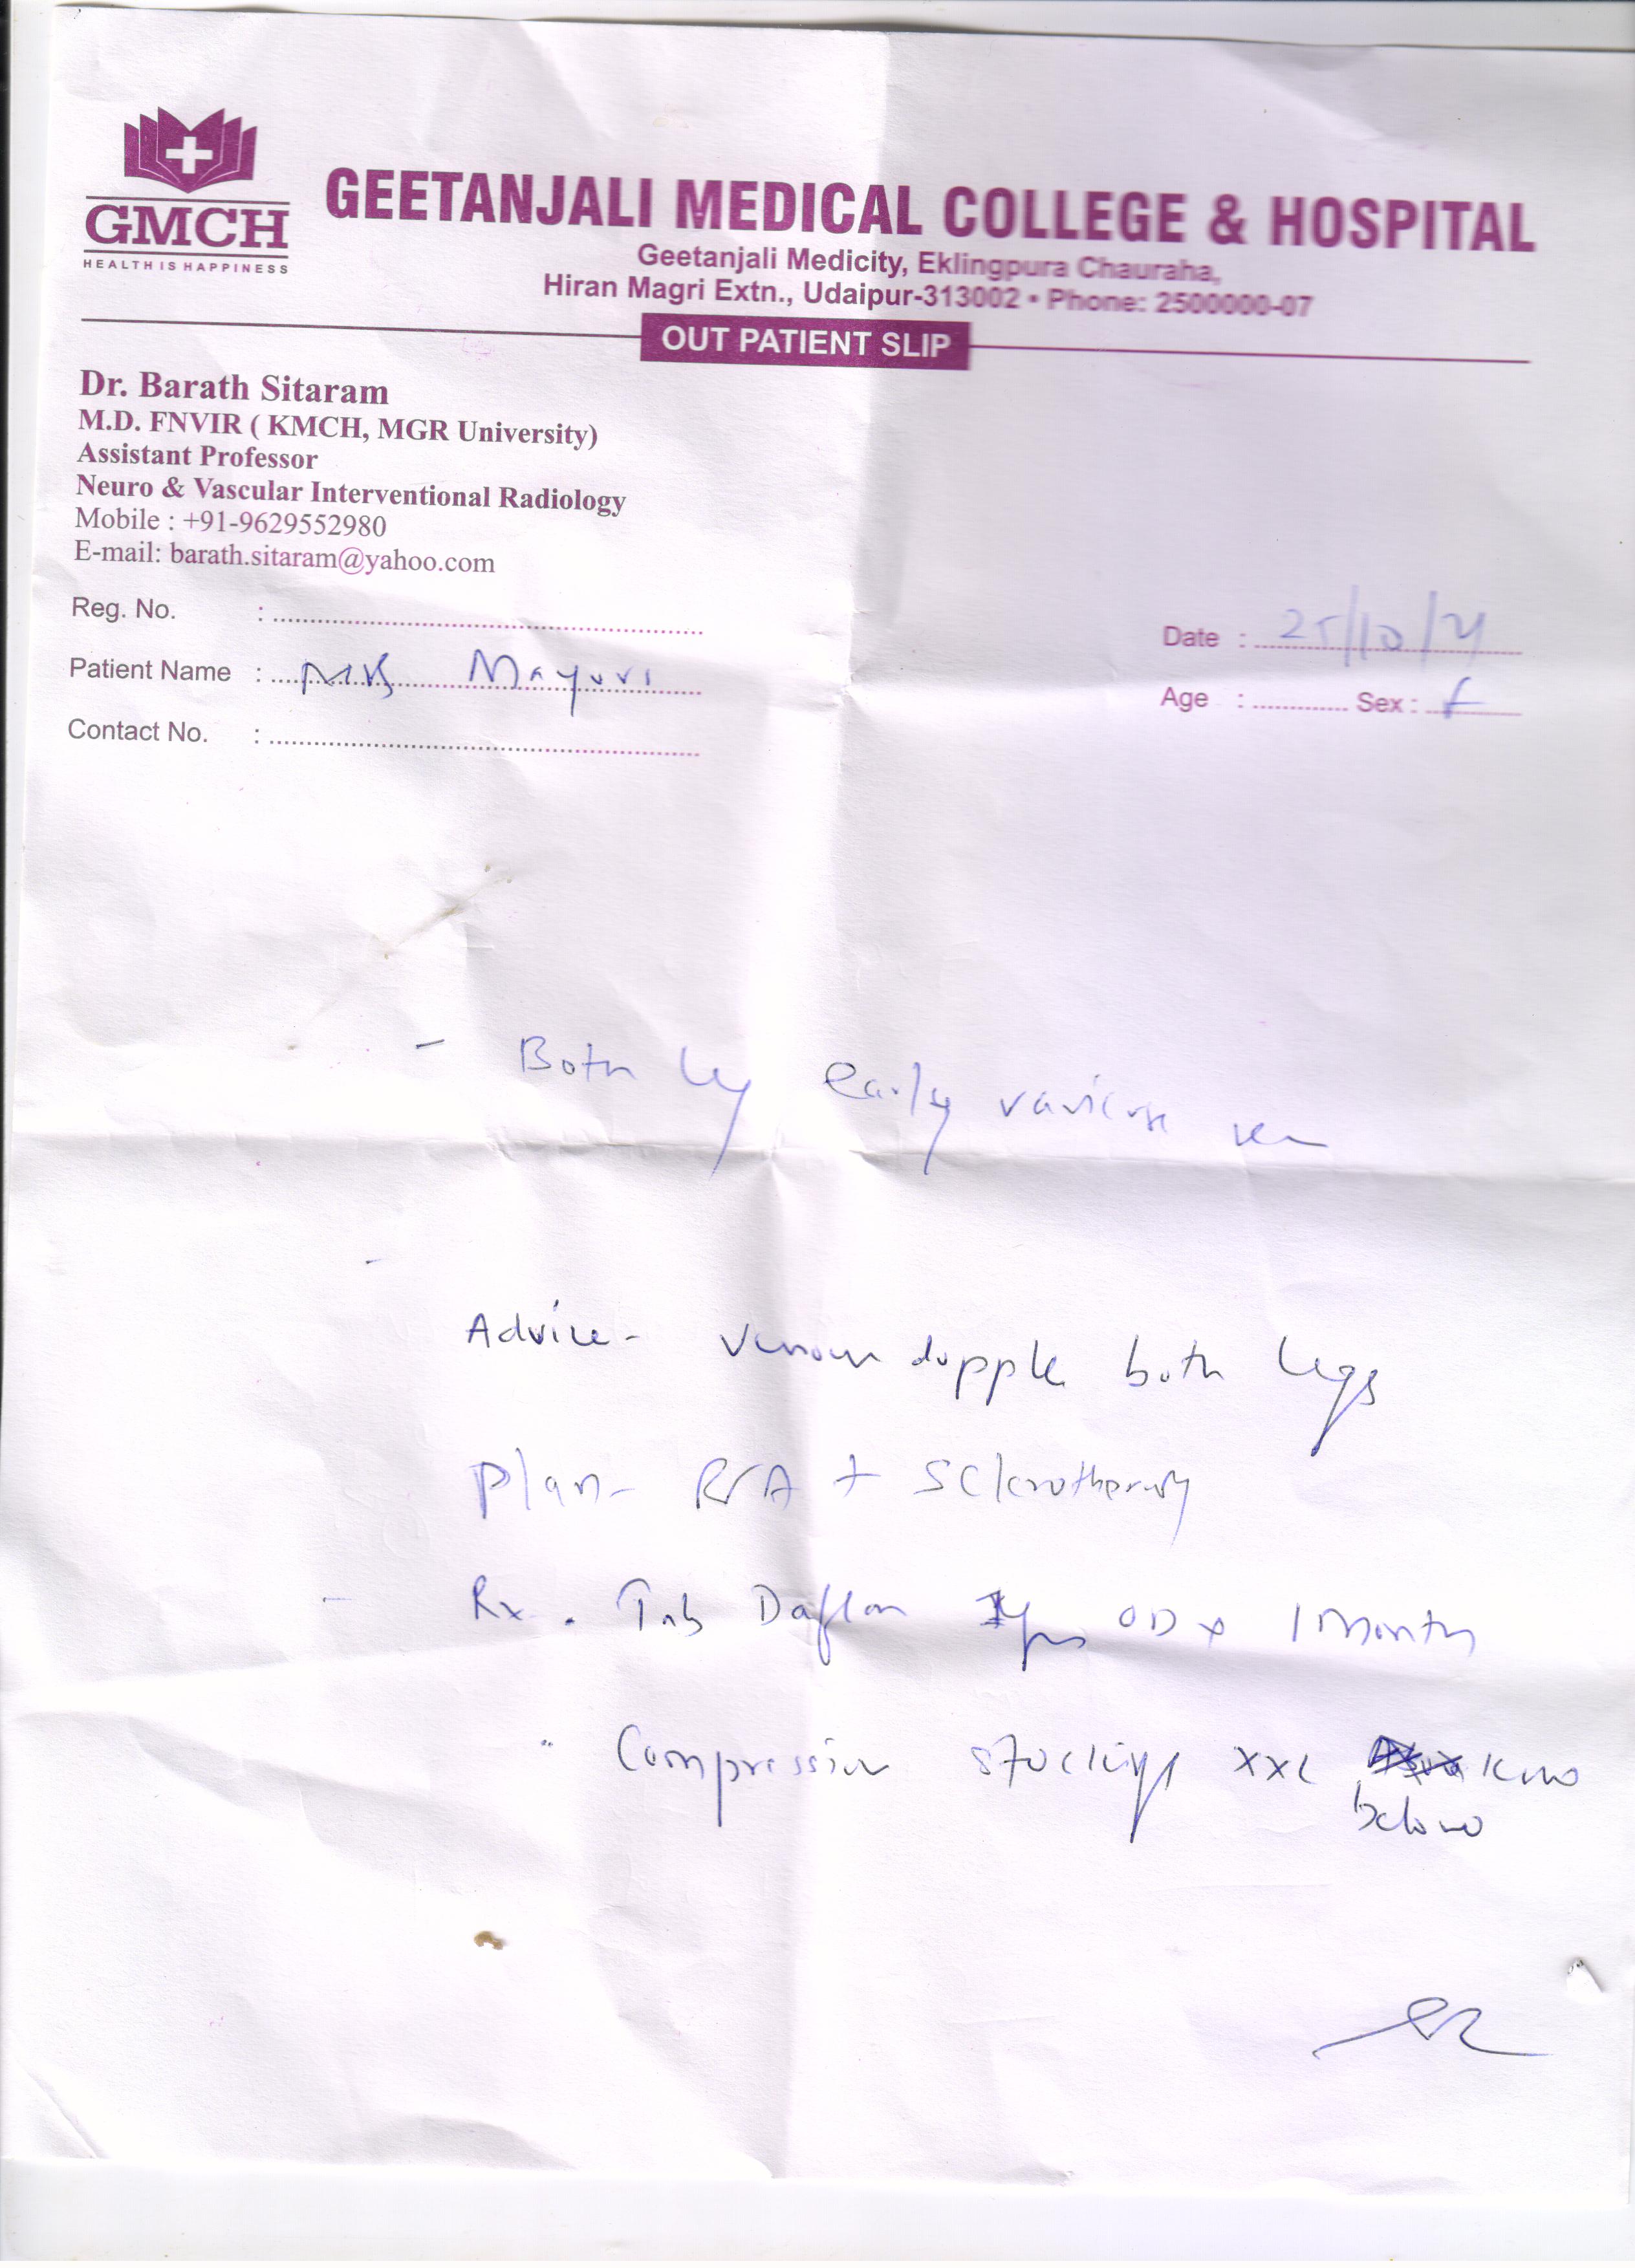 GMCH
HEALTH IS HAPPINESS
GEETANJALI MEDICAL COLLEGE & HOSPITAL
Geetanjali Medicity, Eklingpura Chauraha,
Hiran Magri Extn., Udaipur-313002 • Phone: 2500000-07
OUT PATIENT SLIP
Dr. Barath Sitaram
M.D. FNVIR ( KMCH, MGR University)
Assistant Professor
Neuro & Vascular Interventional Radiology
Mobile : +91-9629552980
E-mail: barath.sitaram@yahoo.com
Reg. No. :
Date : 25/10/21
Patient Name : Mrs Mayuri
Age : Sex : F
Contact No. :
- Both leg early varicose vein
Advice - Venous dopple both legs
Plan - + Sclerotherapy
Rx . Tab Daflon OD x 1 Month
" Compression stockings XXL knee
below